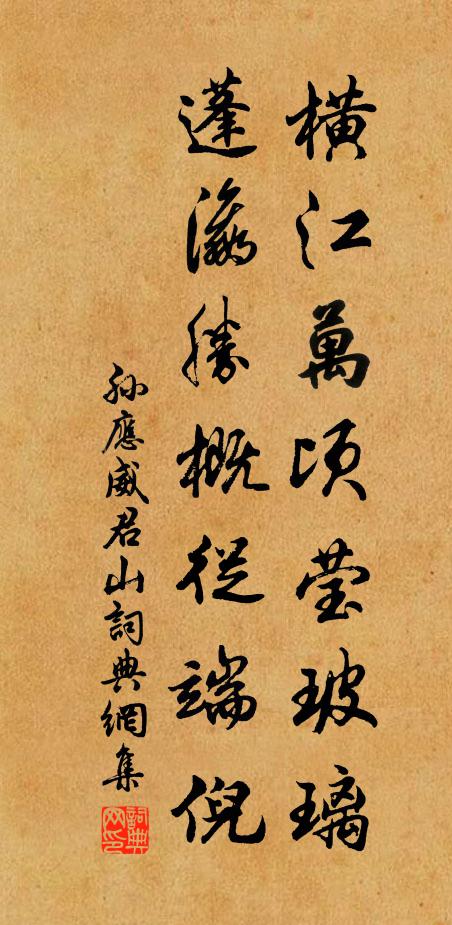 橫江萬頃莹玻璃
蓬瀛勝概從端倪
孙應威君山詞典網集
詞典网印